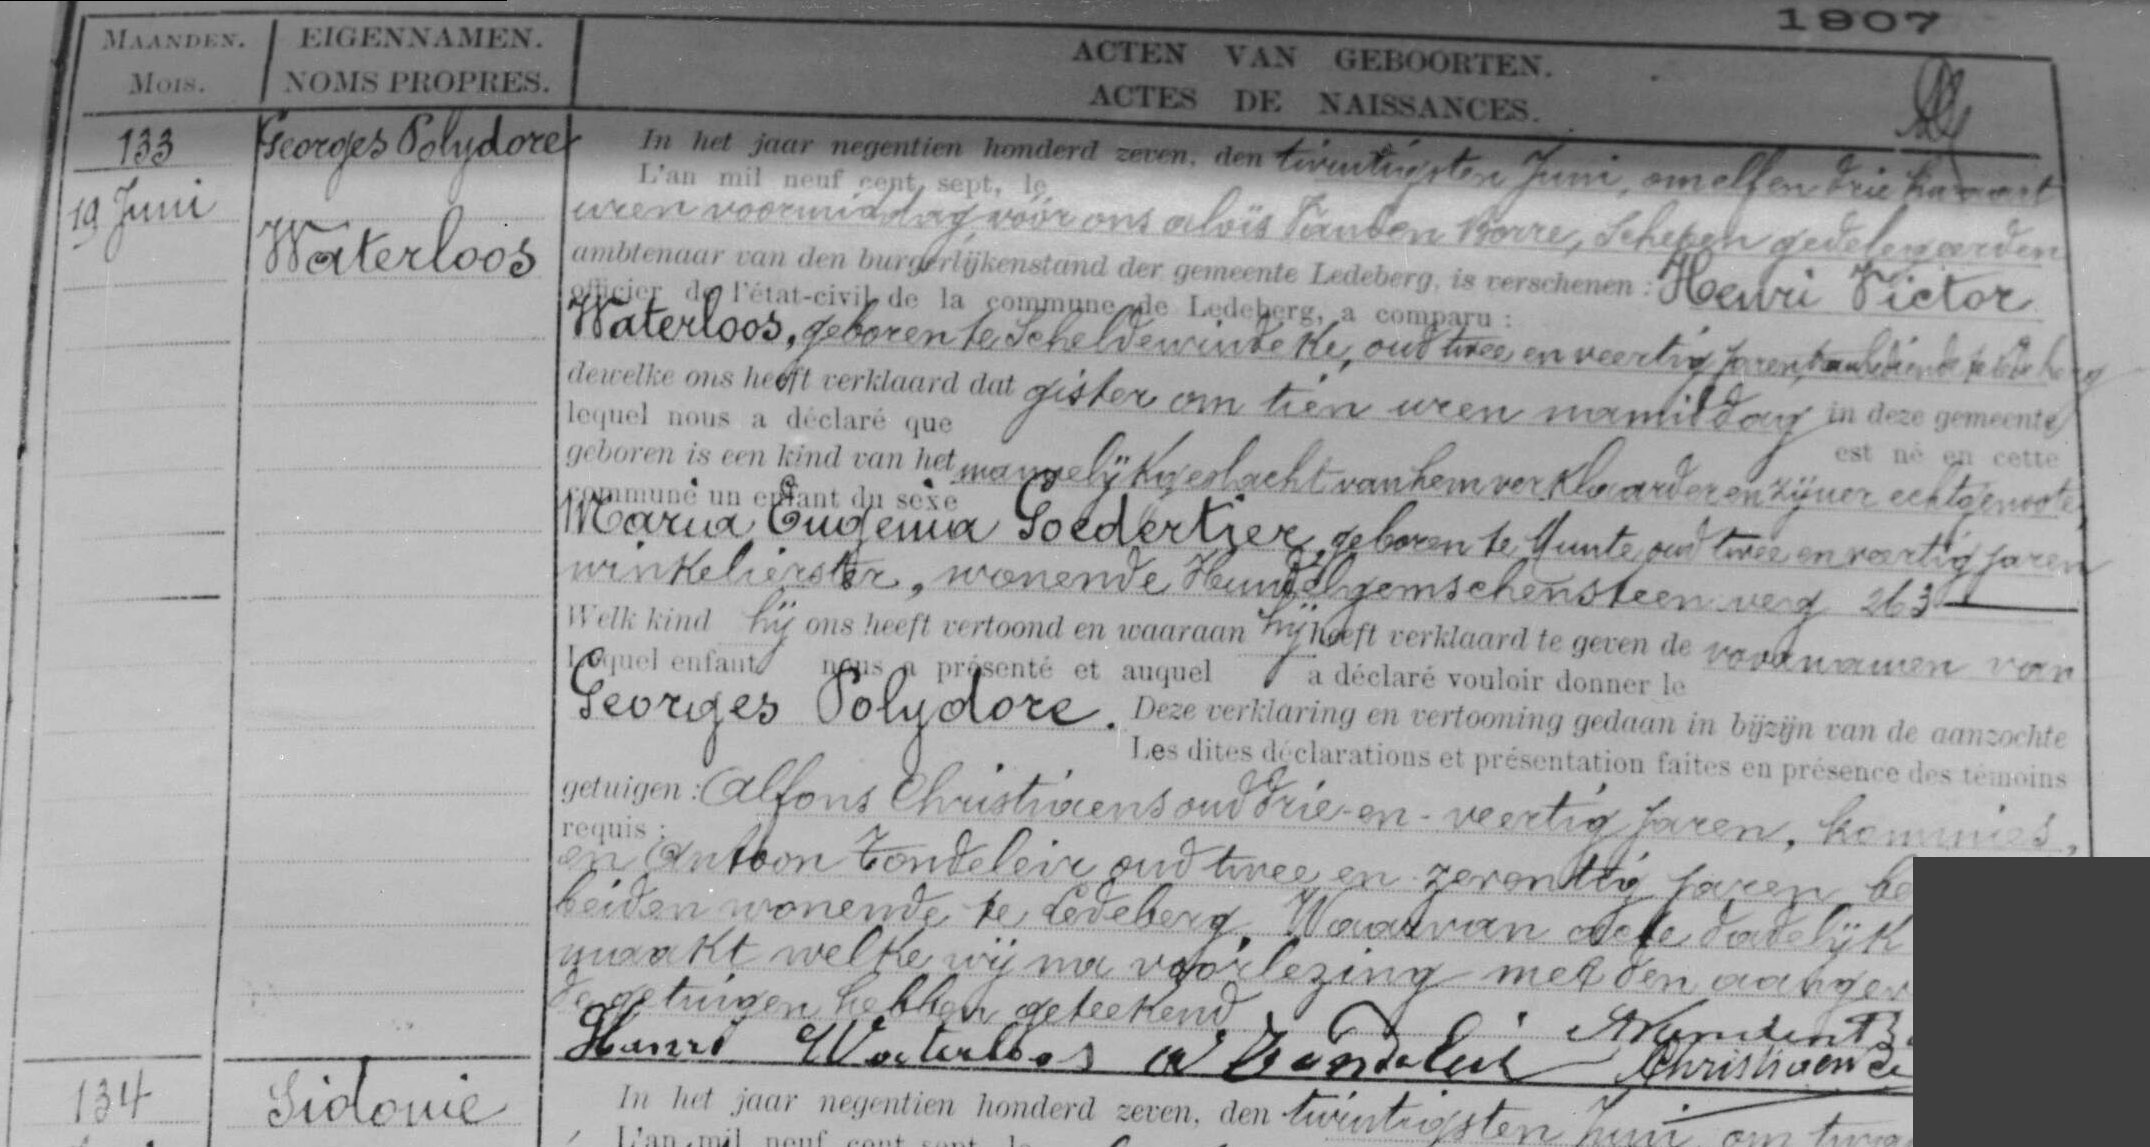 1907
MAANDEN.
MOIS.
EIGENNAMEN.
NOMS PROPRES.
ACTEN VAN GEBOORTEN.
ACTES DE NAISSANCES.
133
19 Juni
Georges Polydore
Waterloos
In het jaar negentien honderd zeven, den twintigsten Juni, om elf en drie kwaart
L'an mil neuf cent sept, le
uren voormiddag, vóór ons Aloïs Vanden Borre, Schepen gedelegeerden
ambtenaar van den burgerlijkenstand der gemeente Ledeberg, is verschenen : Henri Victor
officier de l'état-civil de la commune de Ledeberg, a comparu :
Waterloos, geboren te Scheldewindeke, oud twee en veertig jaren, te Ledeberg
dewelke ons heeft verklaard dat gister om tien uren namiddag in deze gemeente
lequel nous a déclaré que est né en cette
geboren is een kind van het mannelijk geslacht van hem verklaarder en zijner echtgenoote,
commune un enfant du sexe
Maria Eugenia Goedertier, geboren te Munte oud twee en veertig jaren
winkelierster, wonende Hundelgemschensteenweg 263
Welk kind hij ons heeft vertoond en waaraan hij heeft verklaard te geven de voornamen van
Lequel enfant nous a présenté et auquel a déclaré vouloir donner le
Georges Polydore. Deze verklaring en vertooning gedaan in bijzijn van de aanzochte
Les dites déclarations et présentation faites en présence des témoins
getuigen : Alfons Christiaens oud drie-en-veertig jaren, kommies,
requis :
en Antoon Tondeleir oud twee en zeventig jaren be
beiden wonende te Ledeberg. Waarvan acte dadelijk
maakt welke wij na voorlezing met den aanger
de getuigen hebben geteekend
Henri Waterloos A Tondeleir Christiaens
134
Sidonie
In het jaar negentien honderd zeven, den twintigsten Juni, om twa
L'an mil neuf cent sept, le